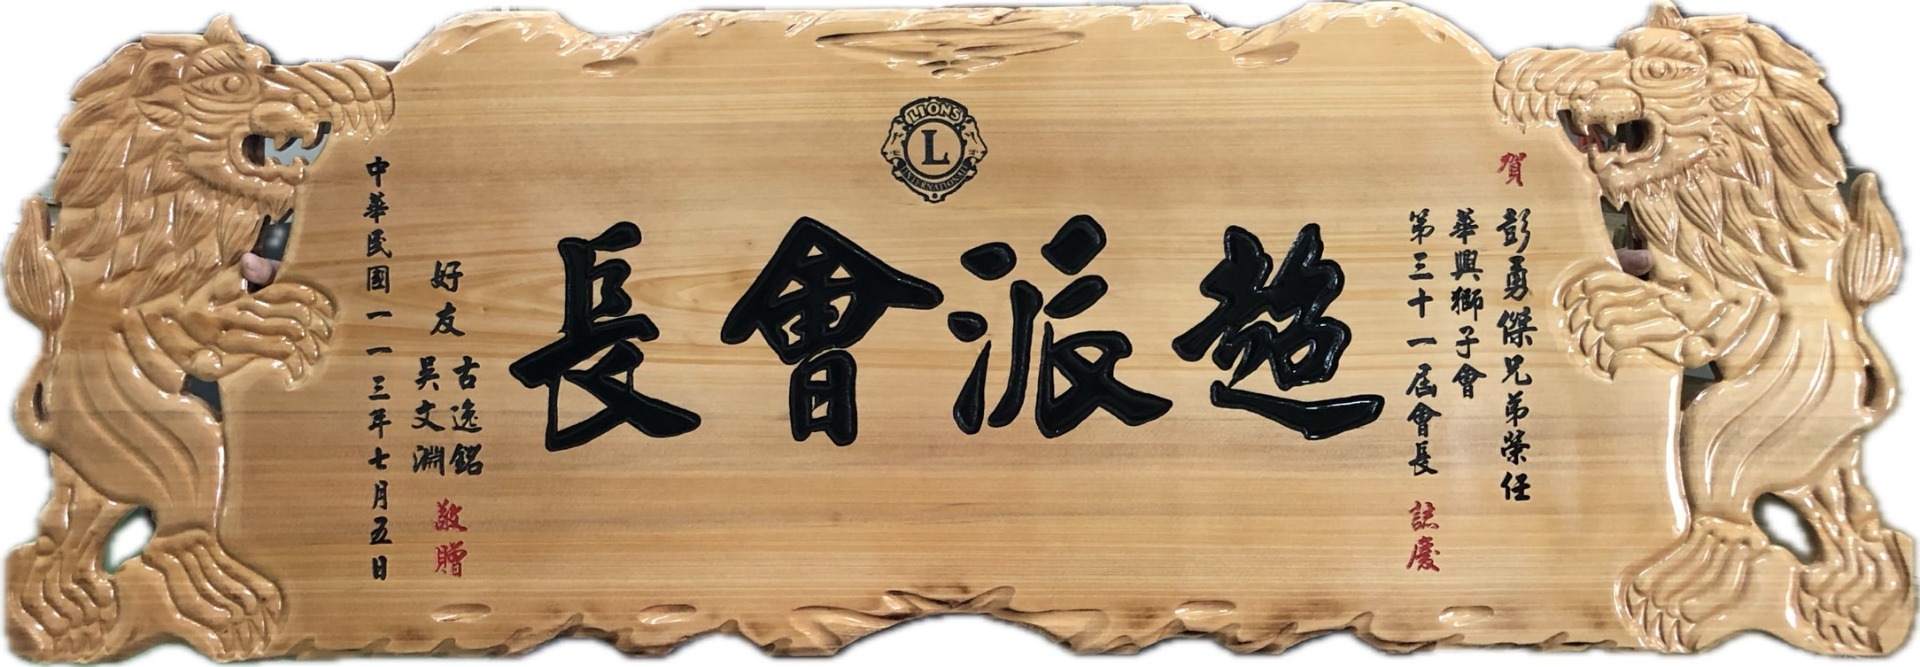 LIONS
L
INTERNATIONAL
賀
彭勇傑兄弟榮任
華興獅子會
第三十一屆會長 誌慶
超派會長
好友
古逸銘
吳文淵
敬贈
中華民國一一三年七月五日